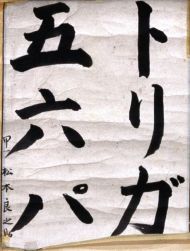 トリガ
五六パ
甲 松本良之助